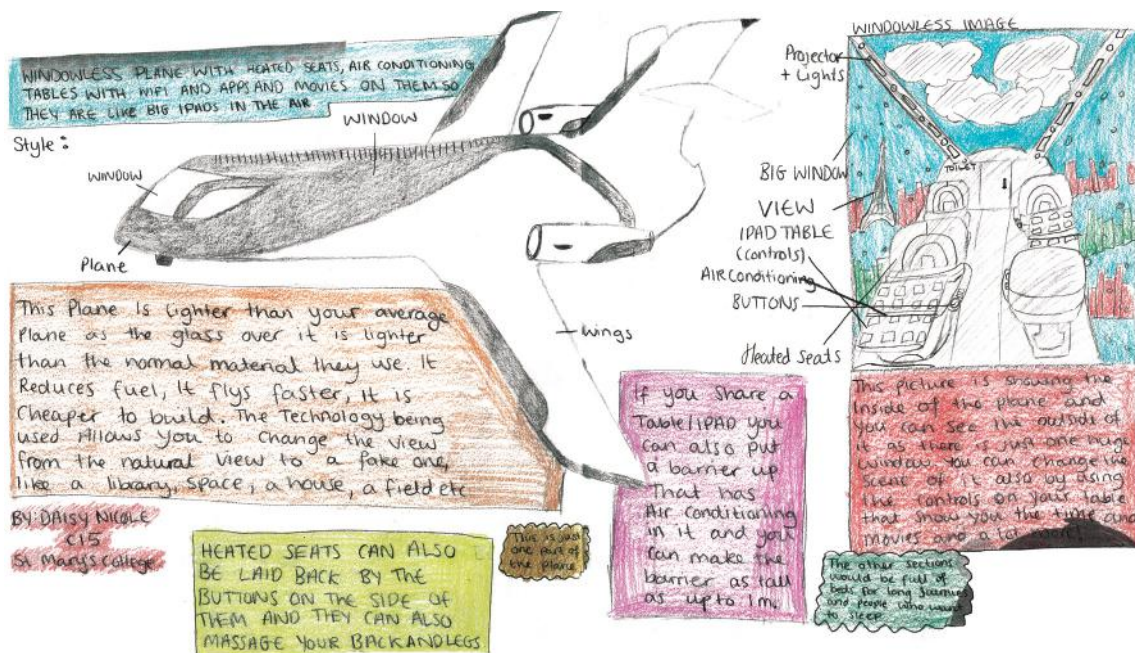 WINDOWLESS PLANE WITH HEATED SEATS, AIR CONDITIONING
TABLES WITH WIFI AND APPS AND MOVIES ON THEM SO
THEY ARE LIKE BIG IPADS IN THE AIR
Style:
WINDOW
WINDOW
Plane
Wings
This Plane Is Lighter than your average
Plane as the glass over it is lighter
than the normal material they use. It
Reduces fuel, It flys faster, it is
Cheaper to build. The Technology being
used Allows You to Change the View
from the natural view to a fake one,
like a library, Space, a house, a field etc
BY: DAISY NICOLE
C15
St Mary's College
HEATED SEATS CAN ALSO
BE LAID BACK BY THE
BUTTONS ON THE SIDE OF
THEM AND THEY CAN ALSO
MASSAGE YOUR BACK AND LEGS
This is just
one part of
the plane
If you share a
Table/IPAD you
can also put
a barrier up
That has
Air Conditioning
in it and you
can make the
barrier as tall
as up to 1m.
WINDOWLESS IMAGE
Projector
+ Lights
BIG WINDOW
VIEW
IPAD TABLE
(controls)
AIR Conditioning
BUTTONS
Heated seats
TOILET
This picture is showing the
Inside of the plane and
you can see the outside of
it as there is just one huge
window. You can change the
Scene of it also by using
the controls on your table
that show you the time and
movies and a lot more!
The other sections
would be full of
beds for long Journeys
and people who want
to sleep